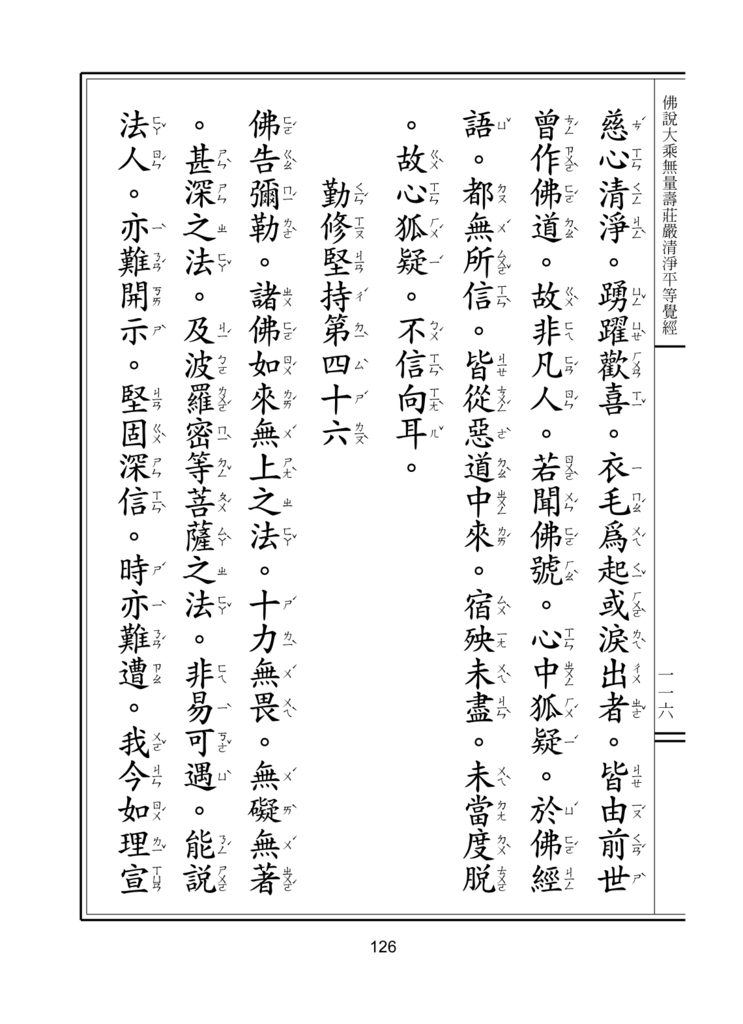 佛說大乘無量壽莊嚴清淨平等覺經
一一六
慈心清淨。踴躍歡喜。衣毛為起或淚出者。皆由前世
曾作佛道。故非凡人。若聞佛號。心中狐疑。於佛經
語。都無所信。皆從惡道中來。宿殃未盡。未當度脫
。故心狐疑。不信向耳。
勤修堅持第四十六
佛告彌勒。諸佛如來無上之法。十力無畏。無礙無著
。甚深之法。及波羅密等菩薩之法。非易可遇。能說
法人。亦難開示。堅固深信。時亦難遭。我今如理宣
126